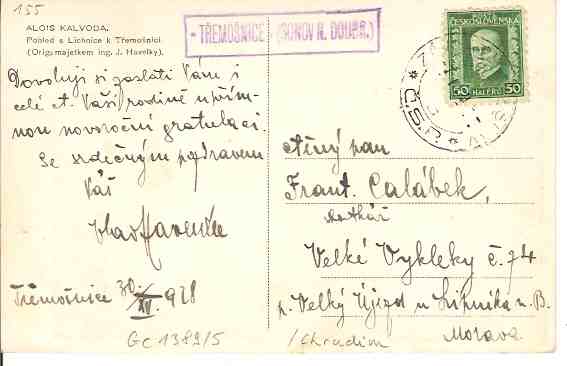 155
ALOIS KALVODA.
Pohled s Lichnice k Třemošnici.
(Orig. majetkem ing. J. Havelky).
TŘEMOŠNICE (RONOV n. DOUBR.)
ČESKOSLOVENSKO
50 HALÉŘŮ 50
Dovoluji si zaslati Vám i
celé ct. Vaší rodině upřím-
nou novoroční gratulaci.
Se srdečným pozdravem
Váš
Třemošnice 30/XII. 928
GC 1389/5
Ctěný pan
Frant. Calábek,
Velké Vykleky č. 74
p. Velký Újezd u Lipníka n. B.
Morava
/Chrudim